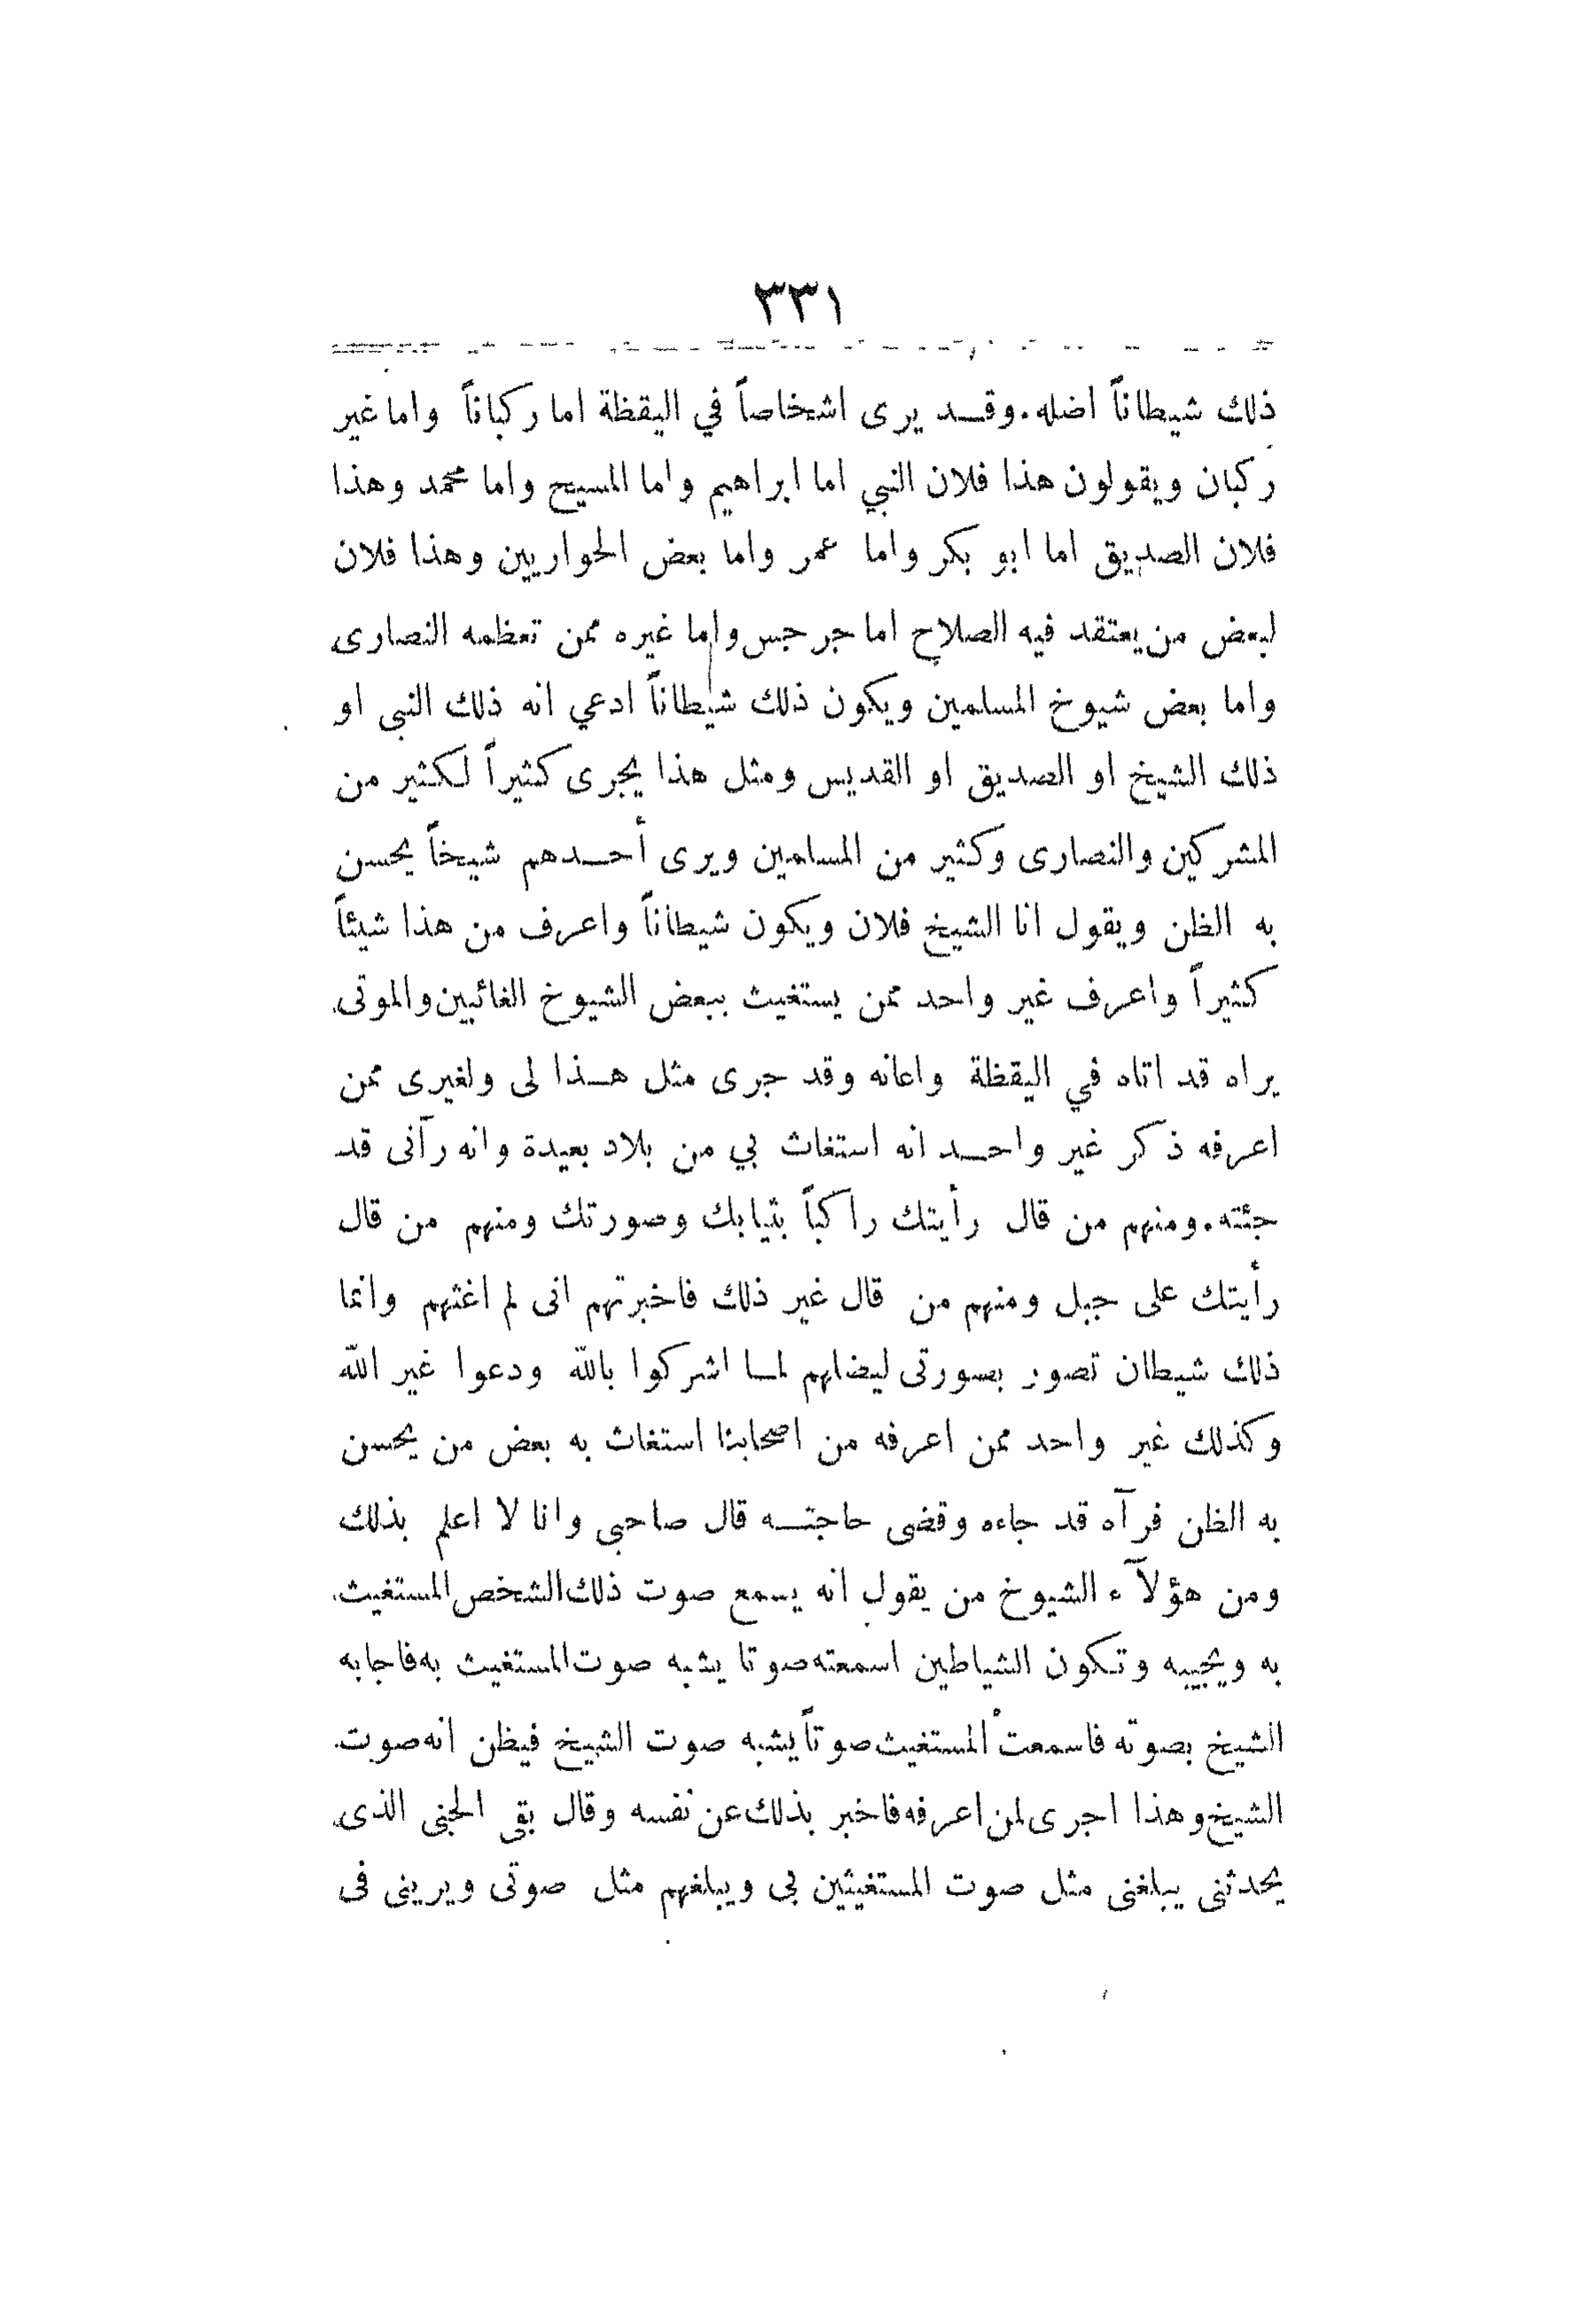 ٣٣١
ذلك شيطاناً اضله.وقد يرى اشخاصاً في اليقظة اما ركباناً واما غير
ركبان ويقولون هذا فلان النبي اما ابراهيم واما المسيح واما محمد وهذا
فلان الصديق اما ابو بكر واما عمر واما بعض الحواريين وهذا فلان
لبعض من يعتقد فيه الصلاح اما جرجس واما غيره ممن تعظمه النصارى
واما بعض شيوخ المسلمين ويكون ذلك شيطاناً ادعي انه ذلك النبى او
ذلك الشيخ او الصديق او القديس ومثل هذا يجرى كثيراً لكثير من
المشركين والنصارى وكثير من المسلمين ويرى أحدهم شيخاً يحسن
به الظن ويقول انا الشيخ فلان ويكون شيطاناً واعرف من هذا شيئاً
كثيراً واعرف غير واحد ممن يستغيث ببعض الشيوخ الغائبين والموتى
يراه قد اتاه في اليقظة واعانه وقد جرى مثل هذا لى ولغيرى ممن
اعرفه ذكر غير واحد انه استغاث بي من بلاد بعيدة وانه رآنى قد
جئته.ومنهم من قال رأيتك راكباً بثيابك وصورتك ومنهم من قال
رأيتك على جبل ومنهم من قال غير ذلك فاخبرتهم انى لم اغثهم وانما
ذلك شيطان تصور بصورتى ليضلهم لما اشركوا بالله ودعوا غير الله
وكذلك غير واحد ممن اعرفه من اصحابنا استغاث به بعض من يحسن
به الظن فرآه قد جاءه وقضى حاجته قال صاحبى وانا لا اعلم بذلك
ومن هؤلآء الشيوخ من يقول انه يسمع صوت ذلك الشخص المستغيث
به ويجيبه وتكون الشياطين اسمعته صوتا يشبه صوت المستغيث به فاجابه
الشيخ بصوته فاسمعت المستغيث صوتاً يشبه صوت الشيخ فيظن انه صوت
الشيخ وهذا اجرى لمن اعرفه فاخبر بذلك عن نفسه وقال بقى الجنى الذى
يحدثنى يبلغنى مثل صوت المستغيثين بى ويبلغهم مثل صوتى ويرينى فى